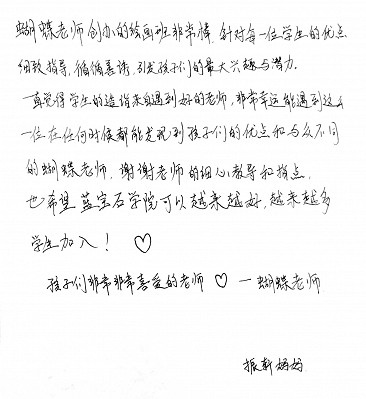 蝴蝶老师创办的绘画班非常棒,针对每一位学生的优点
细致指导,循循善诱,引发孩子们的最大兴趣与潜力.
一直觉得学生的造诣来自遇到好的老师,非常幸运能遇到这么
一位在任何时候都能发现到孩子们的优点和与众不同
的蝴蝶老师.谢谢老师的细心教导和指点,
也希望蓝宝石学院可以越来越好,越来越多
学生加入! ♡
孩子们非常非常喜爱的老师 ♡ — 蝴蝶老师
振轩妈妈